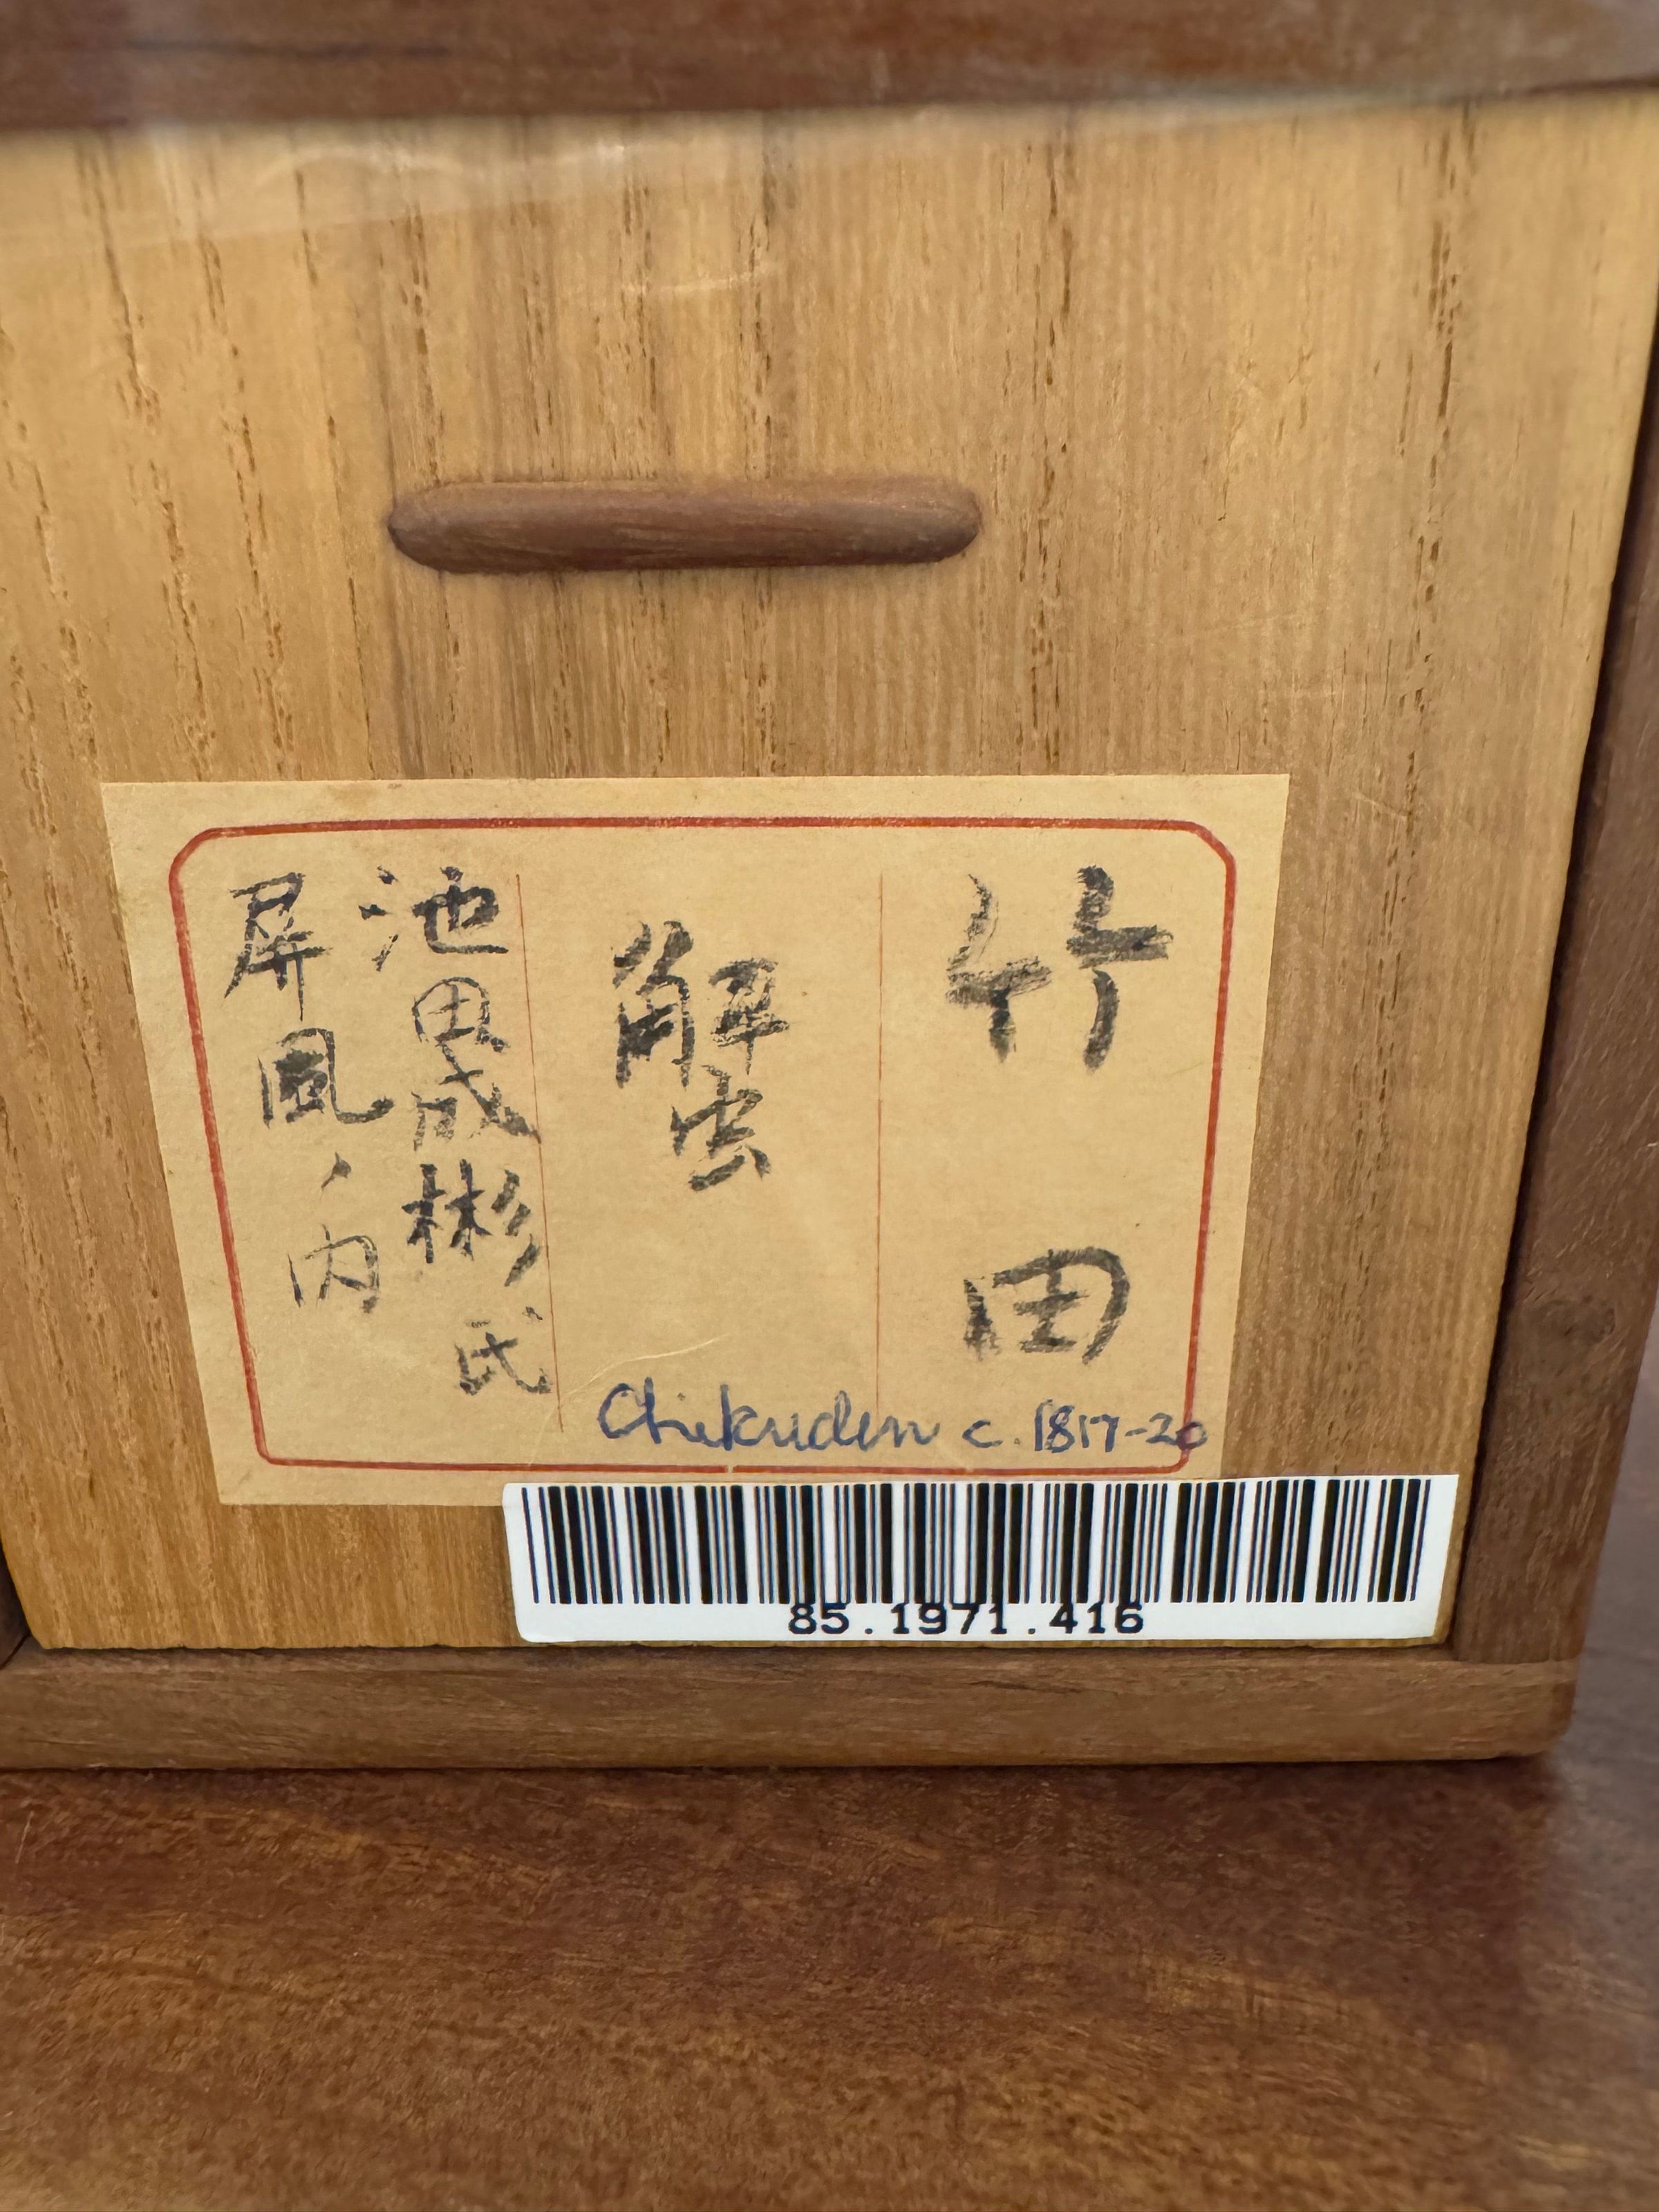 竹田
蟹
池田成彬氏
屏風ノ内
Chikuden c. 1817-20
85.1971.416